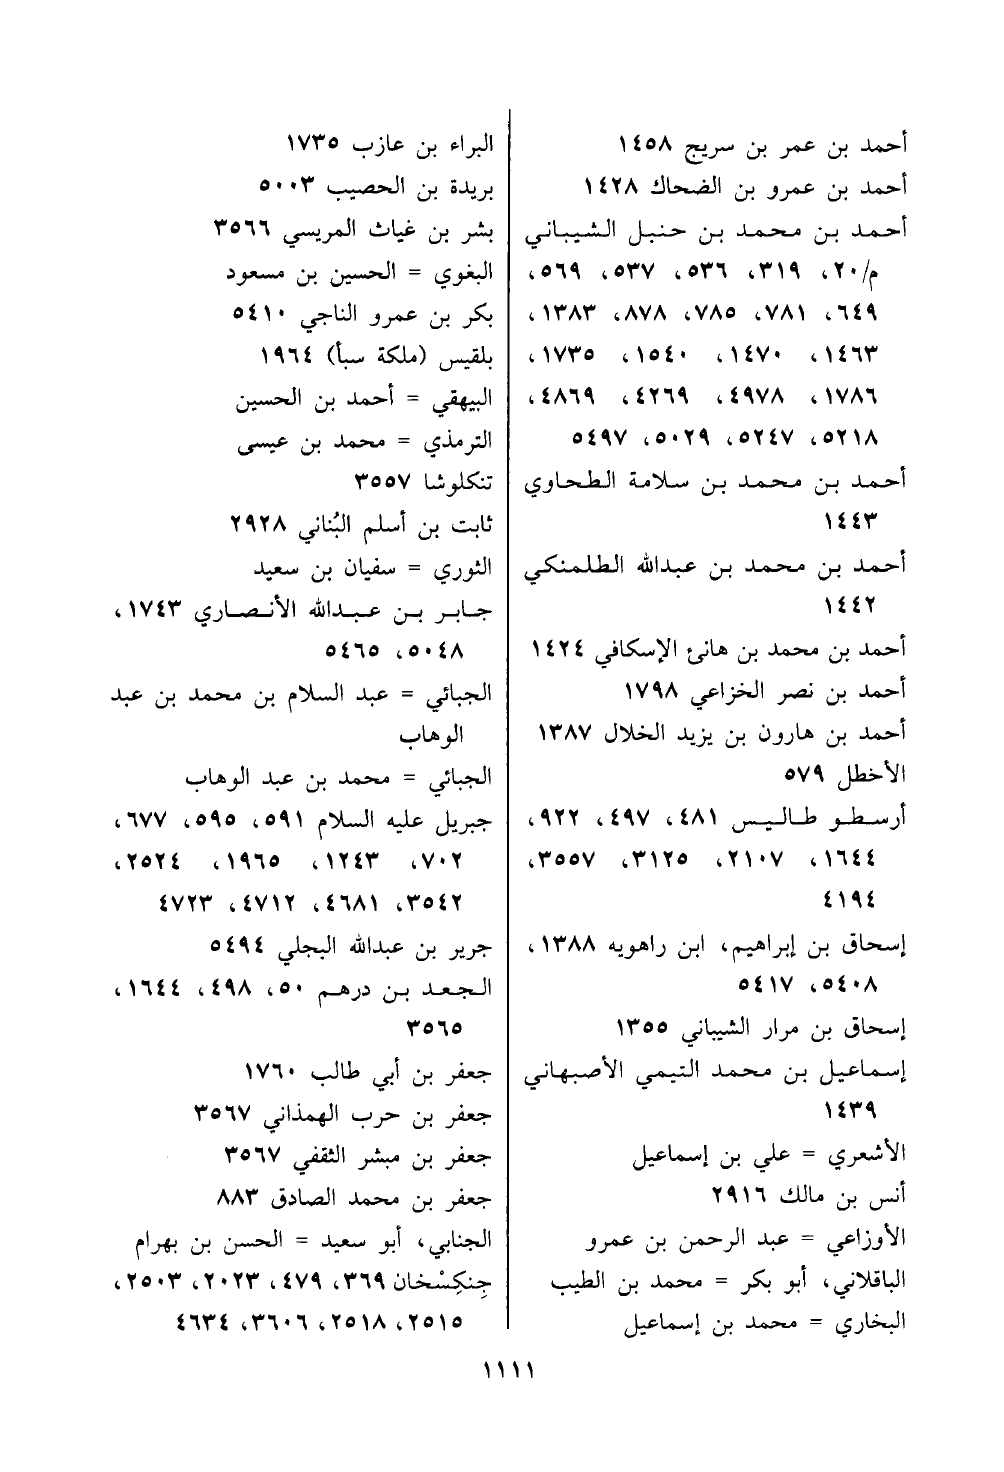 أحمد بن عمر بن سريج ١٤٥٨
أحمد بن عمرو بن الضحاك ١٤٢٨
أحمد بن محمد بن حنبل الشيباني
م/٢٠، ٣١٩، ٥٣٦، ٥٣٧، ٥٦٩،
٦٤٩، ٧٨١، ٧٨٥، ٨٧٨، ١٣٨٣،
١٤٦٣، ١٤٧٠، ١٥٤٠، ١٧٣٥،
١٧٨٦، ٤٩٧٨، ٤٢٦٩، ٤٨٦٩،
٥٢١٨، ٥٢٤٧، ٥٠٢٩، ٥٤٩٧
أحمد بن محمد بن سلامة الطحاوي
١٤٤٣
أحمد بن محمد بن عبدالله الطلمنكي
١٤٤٢
أحمد بن محمد بن هانئ الإسكافي ١٤٢٤
أحمد بن نصر الخزاعي ١٧٩٨
أحمد بن هارون بن يزيد الخلال ١٣٨٧
الأخطل ٥٧٩
أرسطو طاليس ٤٨١، ٤٩٧، ٩٢٢،
١٦٤٤، ٢١٠٧، ٣١٢٥، ٣٥٥٧،
٤١٩٤
إسحاق بن إبراهيم، ابن راهويه ١٣٨٨،
٥٤٠٨، ٥٤١٧
إسحاق بن مرار الشيباني ١٣٥٥
إسماعيل بن محمد التيمي الأصبهاني
١٤٣٩
الأشعري = علي بن إسماعيل
أنس بن مالك ٢٩١٦
الأوزاعي = عبد الرحمن بن عمرو
الباقلاني، أبو بكر = محمد بن الطيب
البخاري = محمد بن إسماعيل
البراء بن عازب ١٧٣٥
بريدة بن الحصيب ٥٠٠٣
بشر بن غياث المريسي ٣٥٦٦
البغوي = الحسين بن مسعود
بكر بن عمرو الناجي ٥٤١٠
بلقيس (ملكة سبأ) ١٩٦٤
البيهقي = أحمد بن الحسين
الترمذي = محمد بن عيسى
تنكلوشا ٣٥٥٧
ثابت بن أسلم البُناني ٢٩٢٨
الثوري = سفيان بن سعيد
جابر بن عبدالله الأنصاري ١٧٤٣،
٥٠٤٨، ٥٤٦٥
الجبائي = عبد السلام بن محمد بن عبد
الوهاب
الجبائي = محمد بن عبد الوهاب
جبريل عليه السلام ٥٩١، ٥٩٥، ٦٧٧،
٧٠٢، ١٢٤٣، ١٩٦٥، ٢٥٢٤،
٣٥٤٢، ٤٦٨١، ٤٧١٢، ٤٧٢٣
جرير بن عبدالله البجلي ٥٤٩٤
الجعد بن درهم ٥٠، ٤٩٨، ١٦٤٤،
٣٥٦٥
جعفر بن أبي طالب ١٧٦٠
جعفر بن حرب الهمذاني ٣٥٦٧
جعفر بن مبشر الثقفي ٣٥٦٧
جعفر بن محمد الصادق ٨٨٣
الجنابي، أبو سعيد = الحسن بن بهرام
جِنكِسْخان ٣٦٩، ٤٧٩، ٢٠٢٣، ٢٥٠٣،
٢٥١٥، ٢٥١٨، ٣٦٠٦، ٤٦٣٤
١١١١